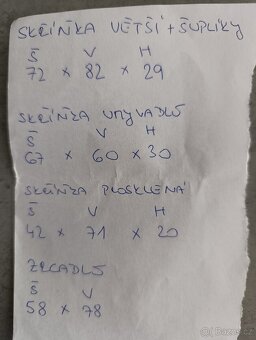 SKŘÍŇKA VĚTŠÍ + ŠUPLÍKY
Š V H
72 x 82 x 29
SKŘÍŇKA UMYVADLO
Š V H
67 x 60 x 30
SKŘÍŇKA PROSKLENÁ
Š V H
42 x 71 x 20
ZRCADLO
Š V
58 x 78